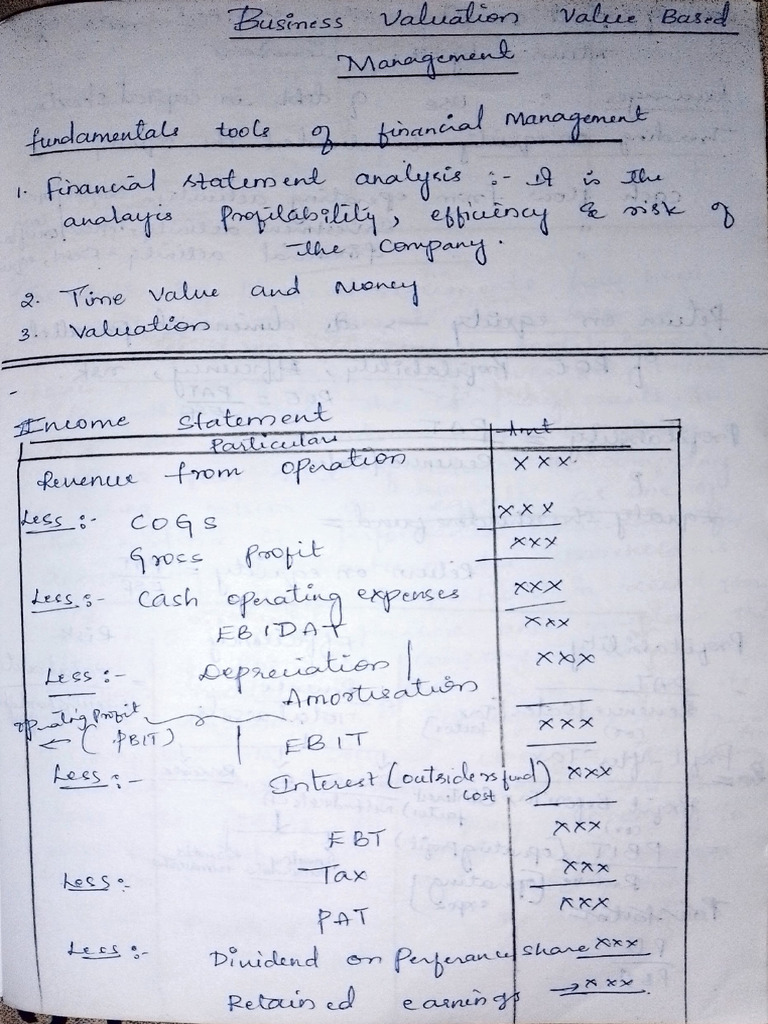 Business Valuation Value Based
Management
fundamentals tools of financial Management
1. Financial statement analysis :- It is the
analayis profilability, efficiency & risk of
the company.
2. Time value and money
3. Valuation
Income Statement
Particulars Amt
Revenue from operation XXX
Less :- COGS XXX
Gross Profit XXX
Less :- Cash operating expenses XXX
EBIDAT XXX
Less :- Depreciation / XXX
Amortisation
operating profit
← (PBIT) | EBIT XXX
Less :- Interest (outsiders fund) XXX
cost
EBT XXX
Less :- Tax XXX
PAT XXX
Less :- Dividend on Perferance share XXX
Retained earnings → XXX